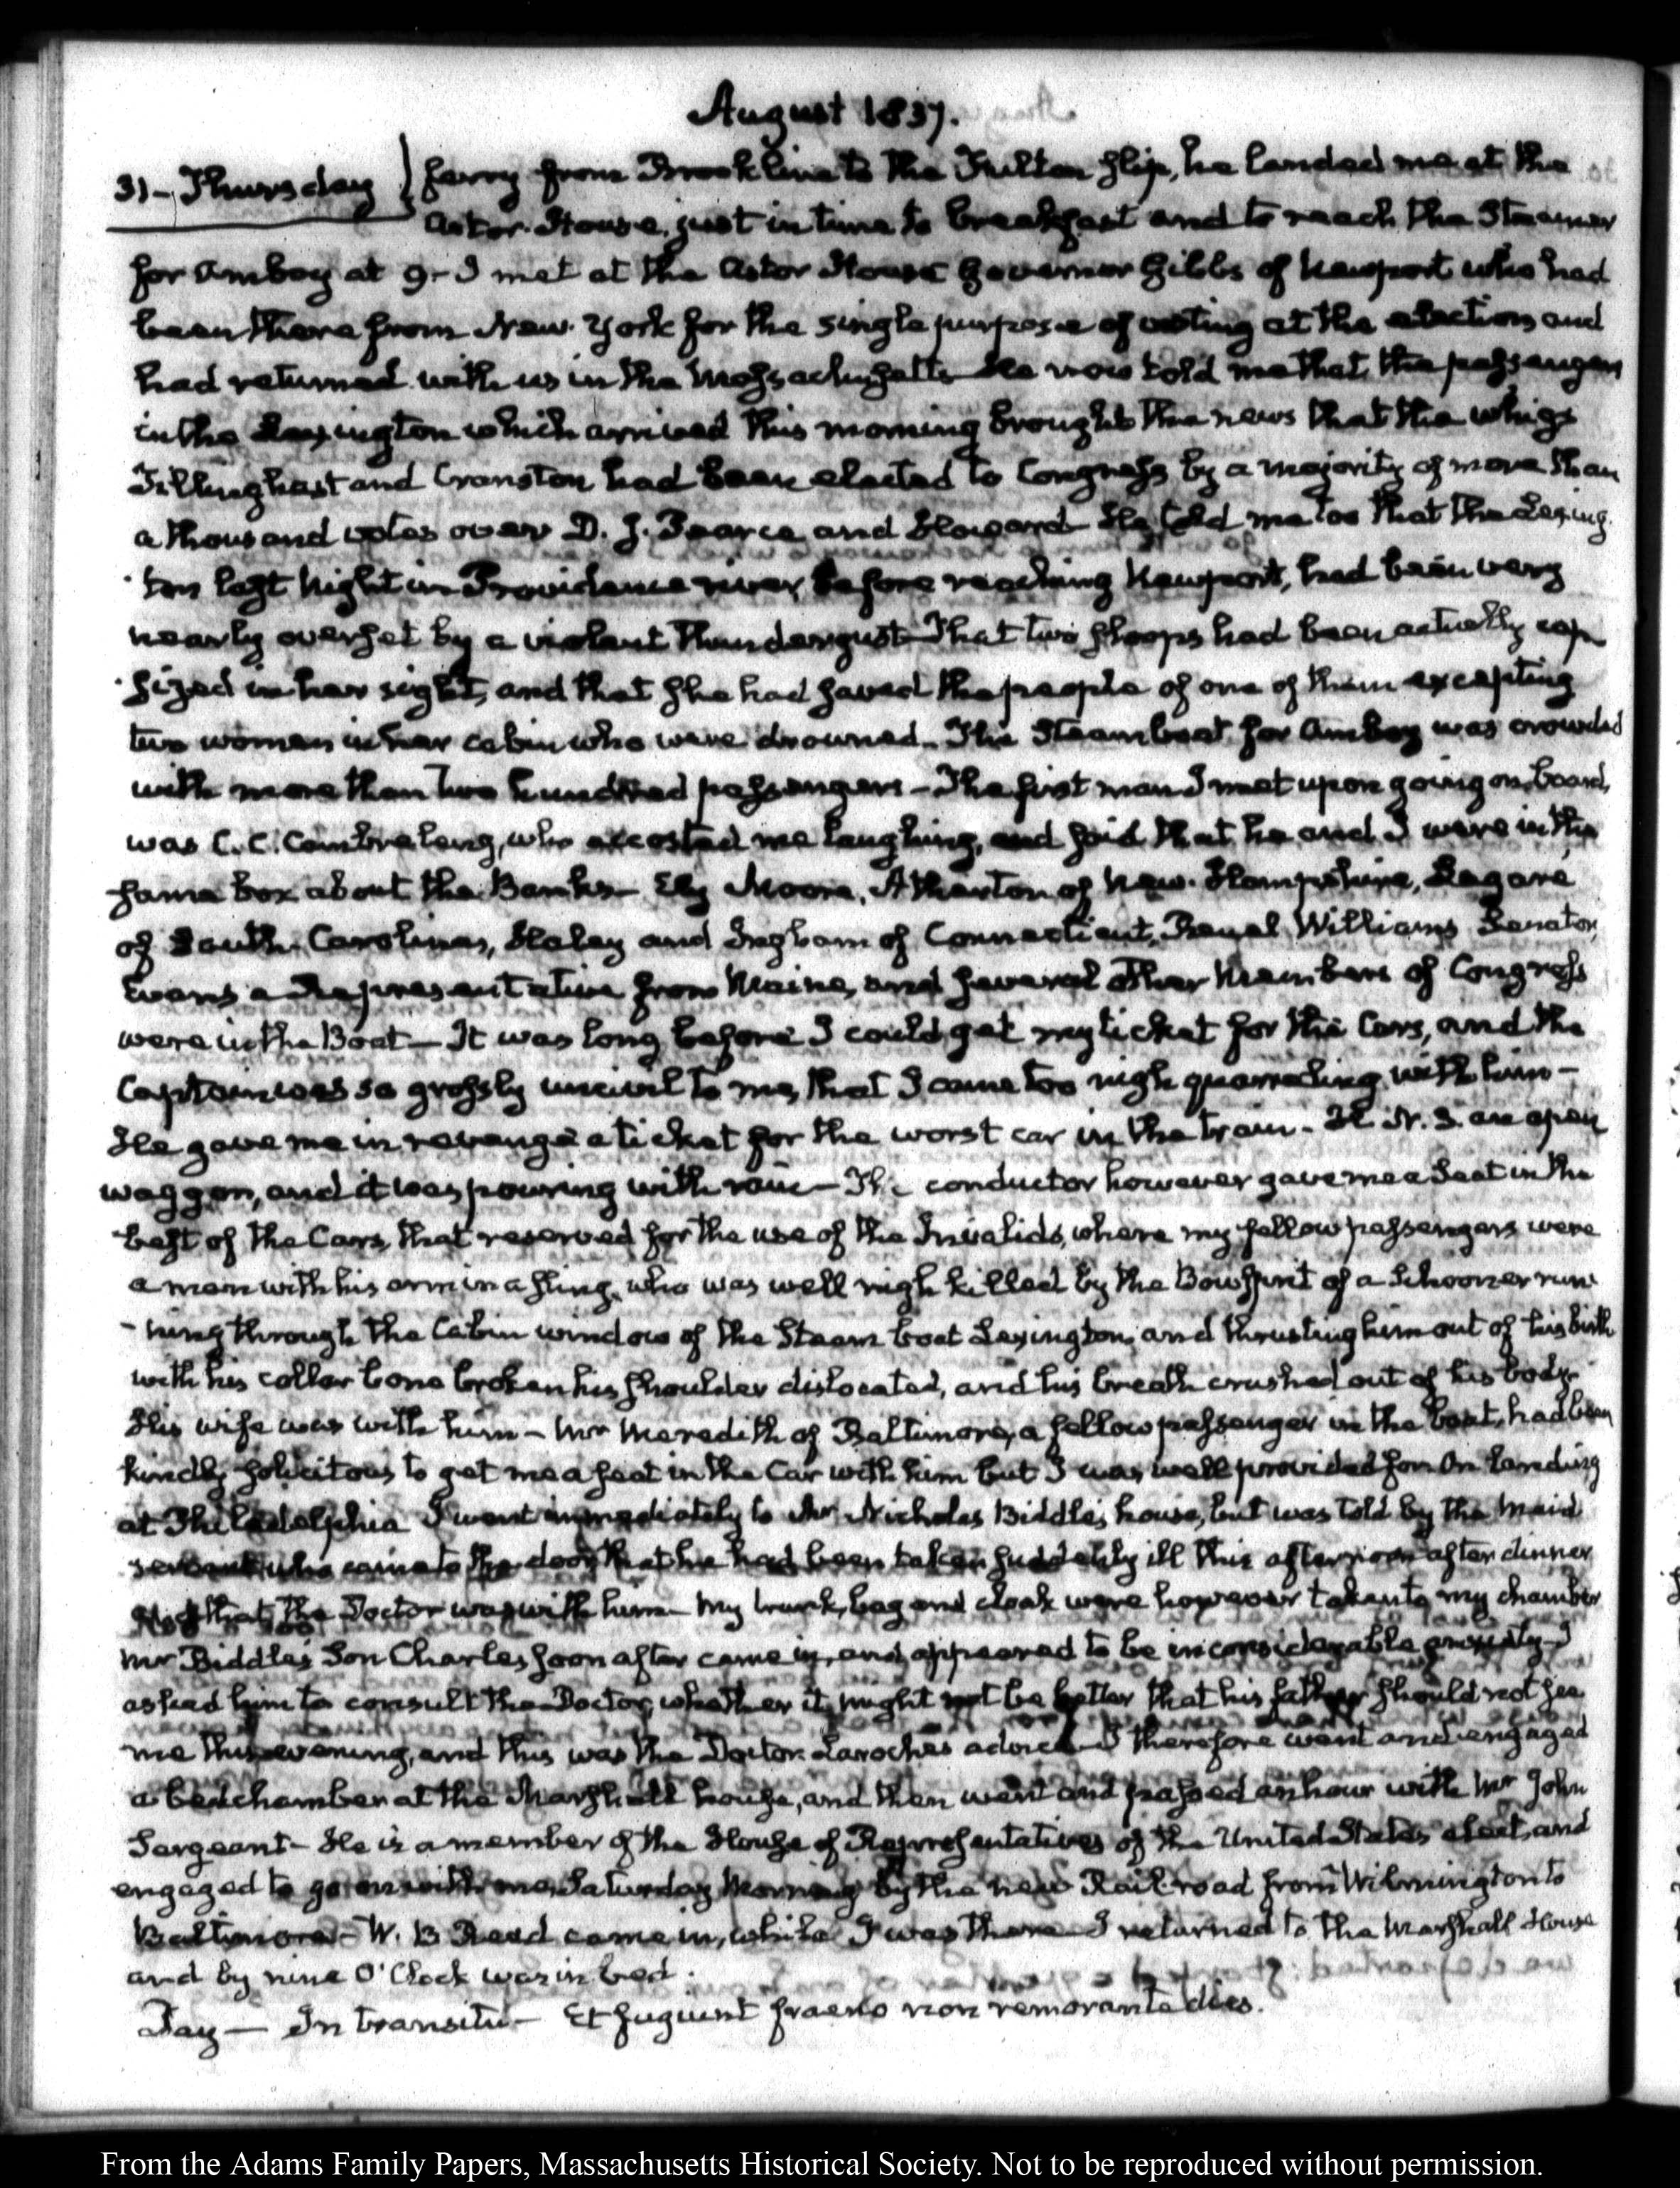 August 1837.
31 – Thursday } ferry from Brookline to the Fulton slip, he landed me at the
Astor-House, just in time to breakfast and to reach the Steamer
for Amboy at 9 – I met at the Astor House Governor Gibbs of Newport who had
been there from New-York for the single purpose of voting at the election and
had returned with us in the Massachusetts – He now told me that the passengers
in the Lexington which arrived this morning brought the news that the whigs
Tillinghast and Cranston had been elected to Congress by a majority of more than
a thousand votes over D. J. Pearce and Howard – He told me too that the Lexing
-ton last Night in Providence river, before reaching Newport, had been very
nearly overset by a violent Thundergust – That two sloops had been actually cap
-sized in her sight, and that she had saved the people of one of them excepting
two women in her cabin who were drowned – The Steamboat for Amboy was crowded
with more than two hundred passengers – The first man I met upon going on board,
was C. C. Cambreleng, who accosted me laughing, and said that he and I were in the
same box about the Banks – Ely Moore, Atherton of New-Hampshire, Legaré
of South-Carolina, Haley and Ingham of Connecticut, Reuel Williams Senator,
Evans a Representative from Maine, and several other Members of Congress
were in the Boat – It was long before I could get my ticket for the Cars, and the
Captain was so grossly uncivil to me, that I came too nigh quarreling with him –
He gave me in revenge a ticket for the worst car in the train – N. 3. an open
waggon, and it was pouring with rain – The conductor however gave me a Seat in the
best of the Cars, that reserved for the use of the Invalids, where my fellow passengers were
a man with his arm in a sling, who was well nigh killed by the Bowsprit of a Schooner run
-ning through the Cabin window of the Steam boat Lexington, and thrusting him out of his birth
with his collar bone broken his shoulder dislocated, and his breath crushed out of his body.
His wife was with him – Mr Meredith of Baltimore, a fellow passenger in the boat, had been
kindly solicitous to get me a seat in the Car with him but I was well provided for. On landing
at Philadelphia I went immediately to Mr Nicholas Biddle's house, but was told by the Maid
servant who came to the door that he had been taken suddenly ill this afternoon after dinner
and that the Doctor was with him – My trunk, bag and cloak were however taken to my chamber
Mr Biddle's Son Charles soon after came in, and appeared to be in considerable anxiety – I
asked him to consult the Doctor, whether it might not be better that his father should not see
me this evening, and this was the Doctor Laroche's advice – I therefore went and engaged
a bedchamber at the Marshall house, and then went and passed an hour with Mr John
Sergeant – He is a member of the House of Representatives of the United States elect, and
engaged to go on with me, Saturday Morning by the new Rail-road from Wilmington to
Baltimore – W. B Read came in, while I was there – I returned to the Marshall House
and by nine O'Clock was in bed.
Day – In transitu – Et fugiunt fraeno non remorante dies.
From the Adams Family Papers, Massachusetts Historical Society. Not to be reproduced without permission.